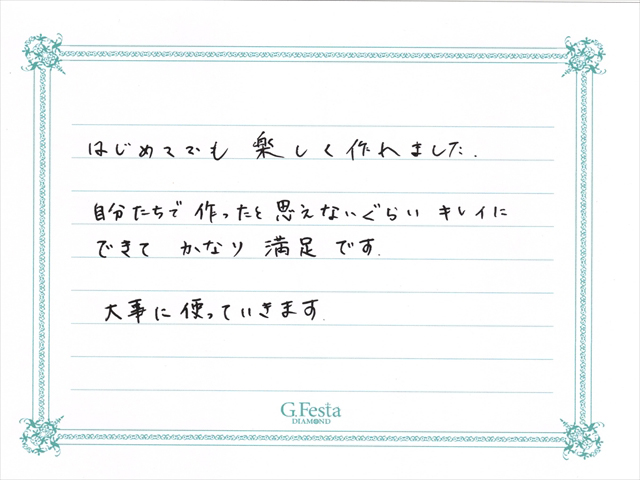 はじめてでも 楽しく作れました.
自分たちで 作ったと思えないぐらい キレイに
できて かなり 満足 です.
大事に使っていきます.
G.Festa
DIAMOND